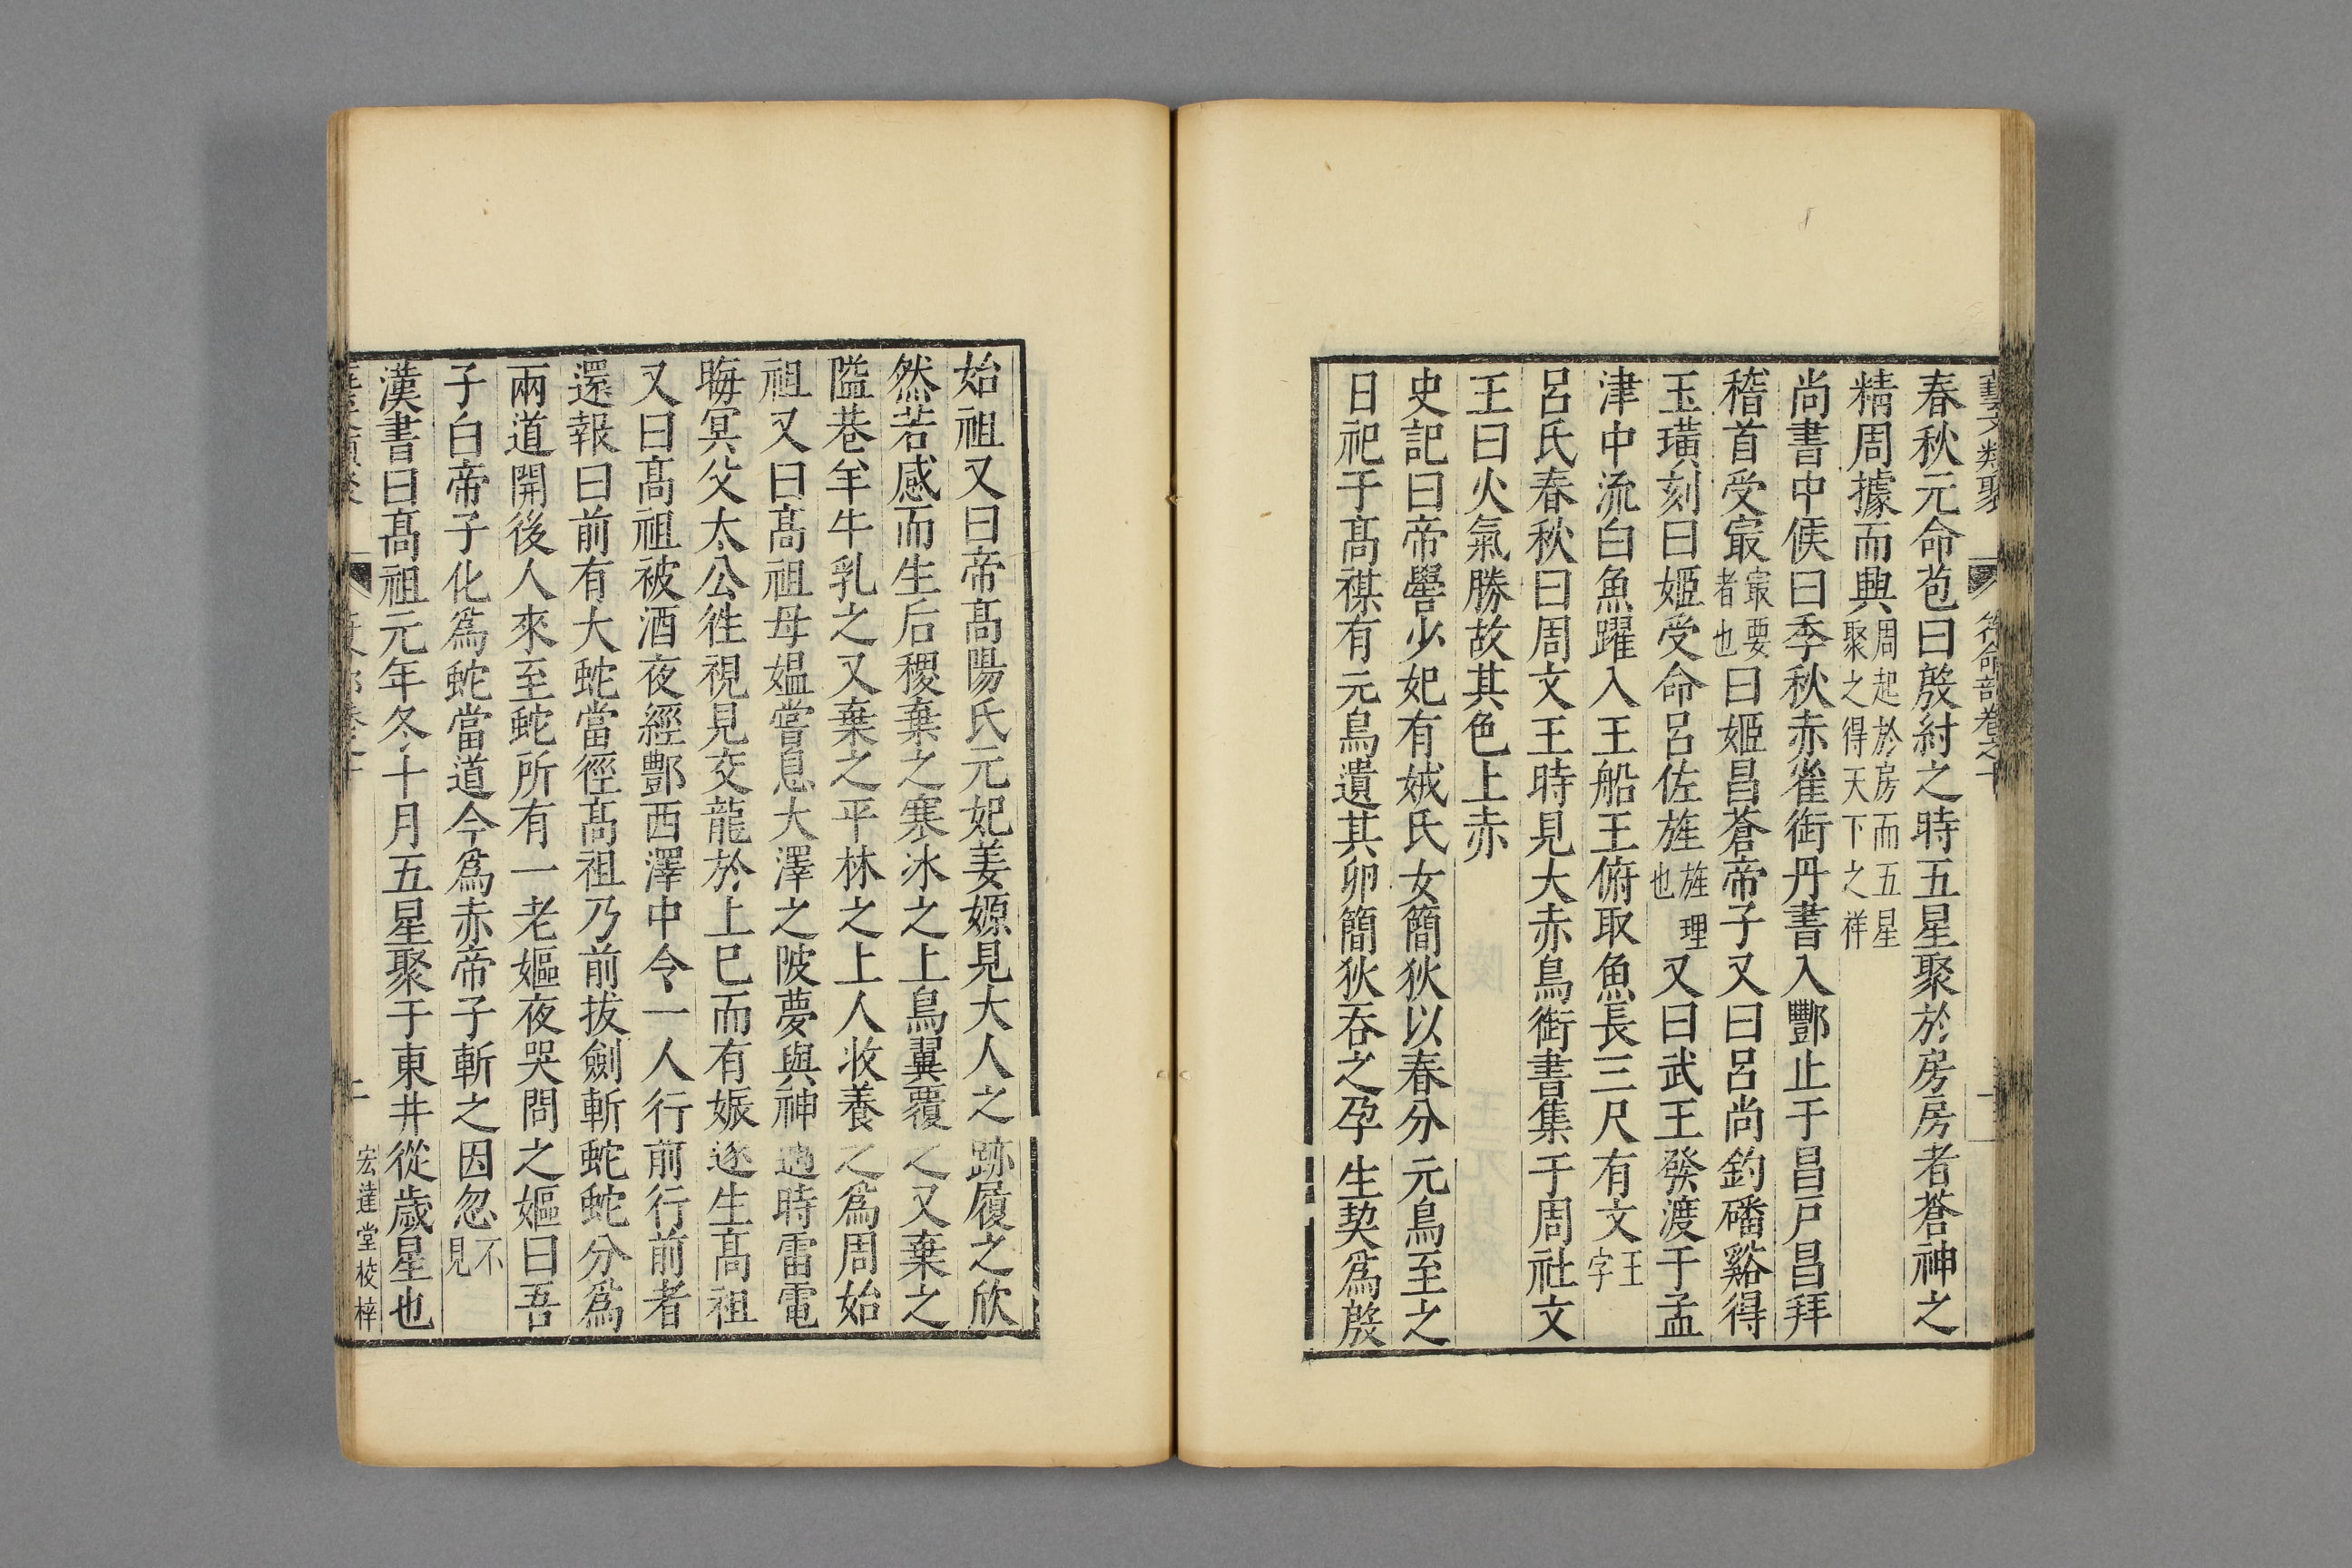 藝文類聚 符命部卷之十 一
春秋元命苞曰殷紂之時五星聚於房房者蒼神之
精周據而興周起於房而五星聚之得天下之祥
尚書中候曰季秋赤雀銜丹書入酆止于昌戸昌拜
稽首受冣冣要者也曰姬昌蒼帝子又曰呂尚釣磻谿得
玉璜刻曰姬受命呂佐旌旌理也又曰武王發渡于孟
津中流白魚躍入王船王俯取魚長三尺有文王字
呂氏春秋曰周文王時見大赤鳥銜書集于周社文
王曰火氣勝故其色上赤
史記曰帝嚳少妃有娀氏女簡狄以春分元鳥至之
日祀于髙禖有元鳥遺其卵簡狄吞之孕生契爲殷
始祖又曰帝髙陽氏元妃姜嫄見大人之跡履之欣
然若感而生后稷棄之寒冰之上鳥翼覆之又棄之
隘巷羊牛乳之又棄之平林之上人收養之爲周始
祖又曰髙祖母媼嘗息大澤之陂夢與神遇時雷電
晦冥父太公徃視見交龍於上巳而有娠遂生髙祖
又曰髙祖被酒夜經酆西澤中令一人行前行前者
還報曰前有大蛇當徑髙祖乃前拔劍斬蛇蛇分爲
兩道開後人來至蛇所有一老嫗夜哭問之嫗曰吾
子白帝子化爲蛇當道今爲赤帝子斬之因忽不見
漢書曰髙祖元年冬十月五星聚于東井從歲星也
宏達堂校梓